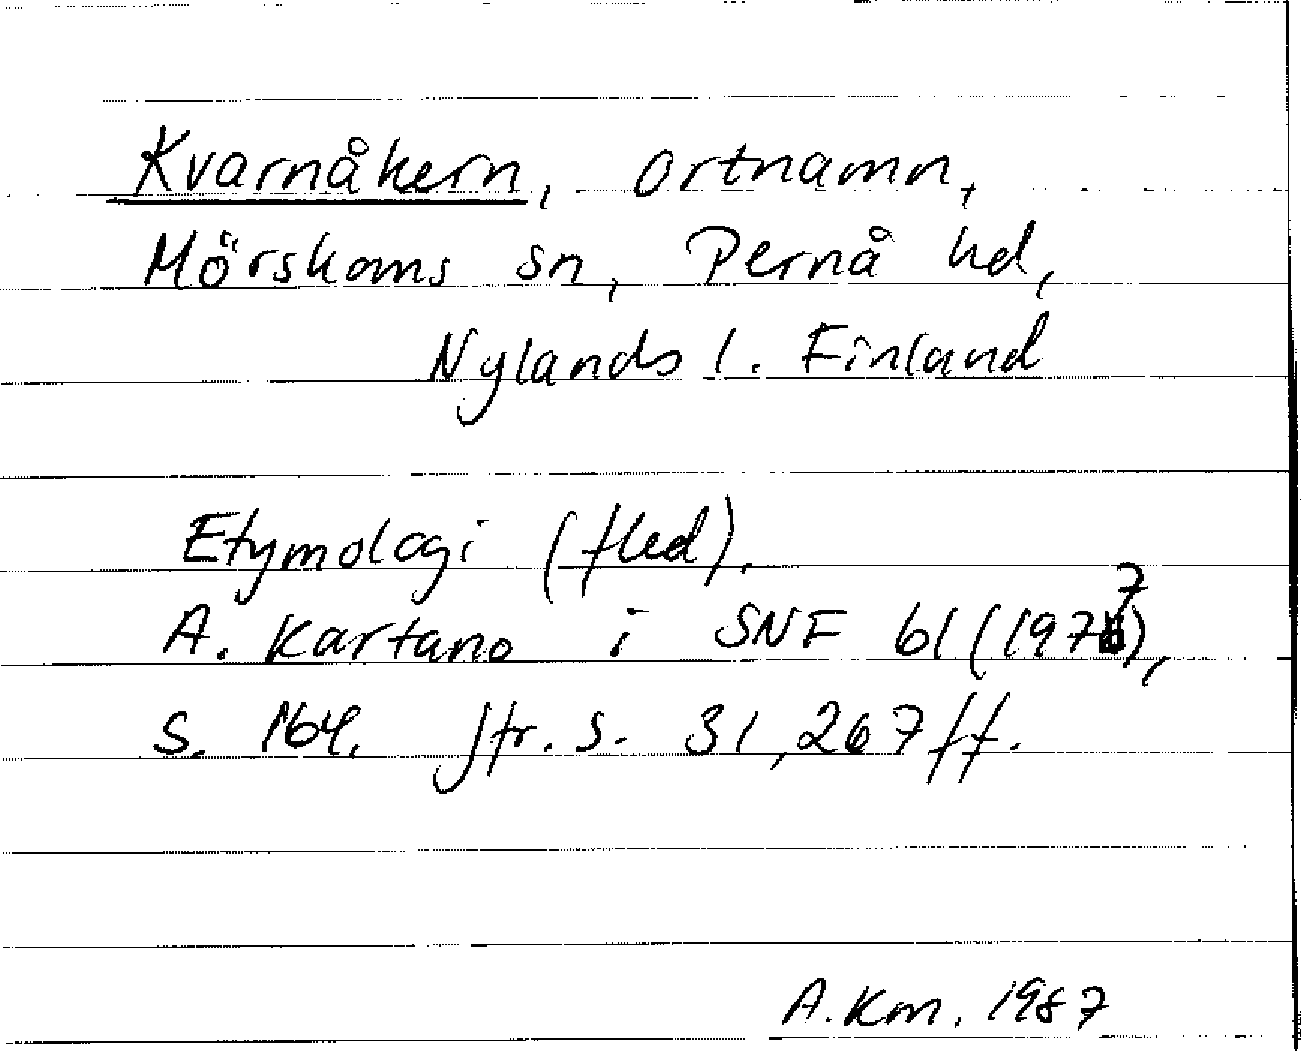 Kvarnåkern, ortnamn,
Mörskoms sn, Pernå hd,
Nylands l. Finland
Etymologi (fled).
A. Kartano i SNF 61 (1977),
s. 164. Jfr. s. 31, 267 ff.
A. Km. 1987